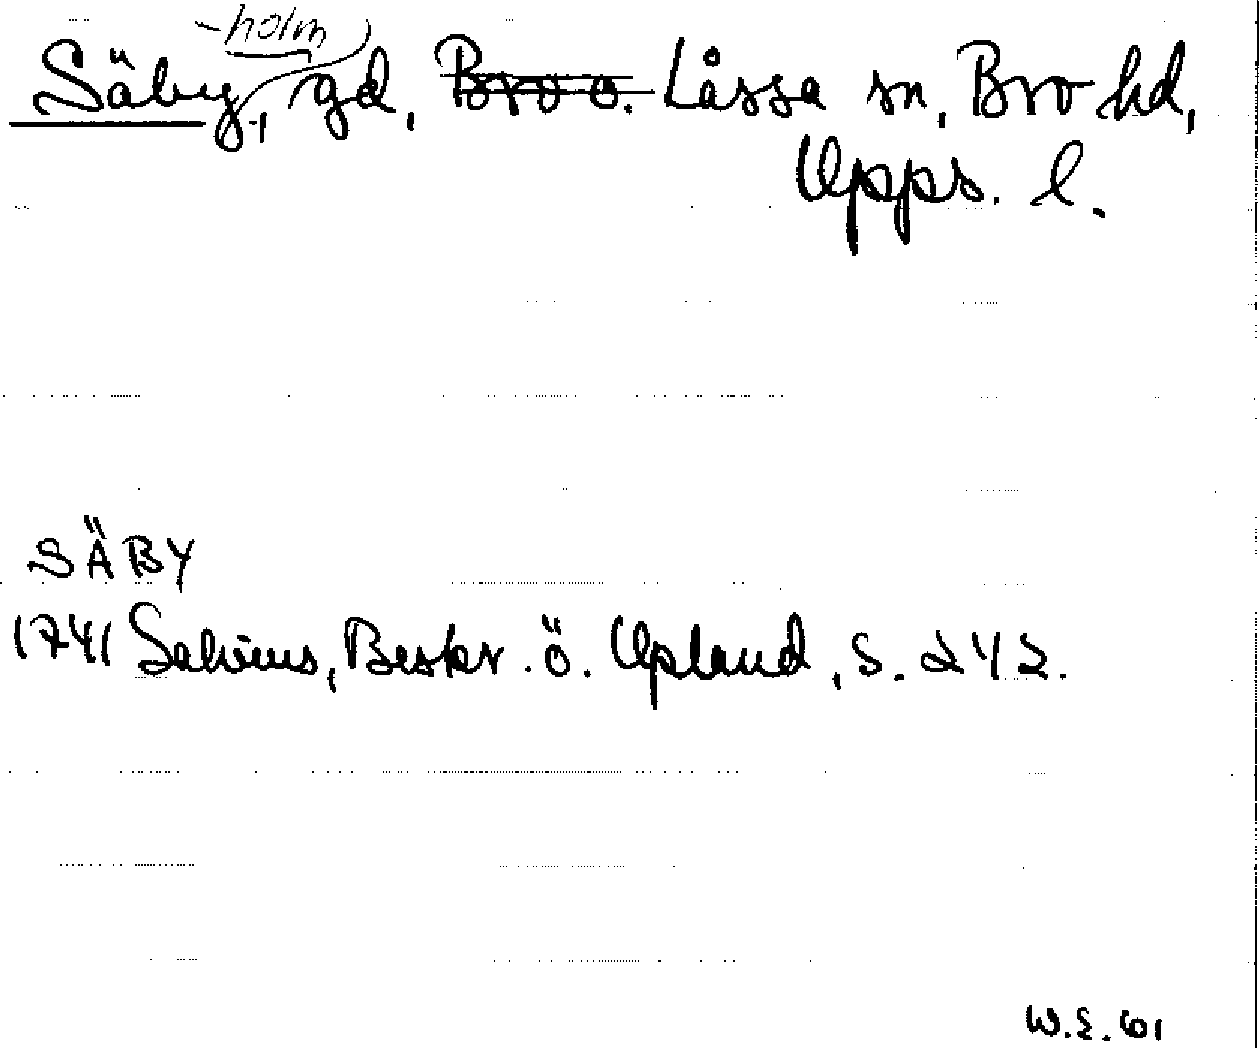 -holm
Säby, gd, Bro o. Låssa sn, Bro hd,
Upps. l.
SÄBY
1741 Salvius, Beskr. ö. Upland, s. 242.
W.E. 61